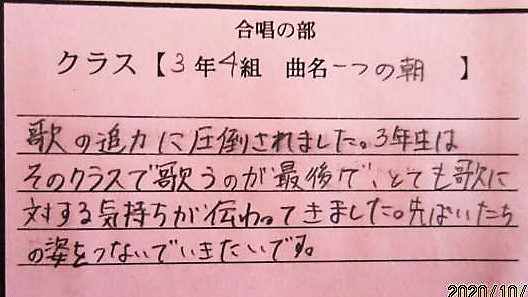 合唱の部
クラス【3年4組 曲名一つの朝 】
歌の追力に圧倒されました。3年生は
そのクラスで歌うのが最後で、とても歌に
対する気持ちが伝わってきました。先ぱいたち
の姿をつないでいきたいです。
2020/10/